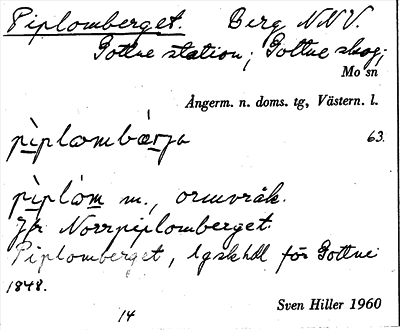 Piplomberget. Berg NNV.
Gottne station; Gottne skog;
Mo sn
Ångerm. n. doms. tg, Västern. l.
pìplombærja 63.
pìplóm m., ormvråk.
Jfr Norrpiplomberget.
Piplomberget, lgskhdl för Gottne
1848.
14 Sven Hiller 1960